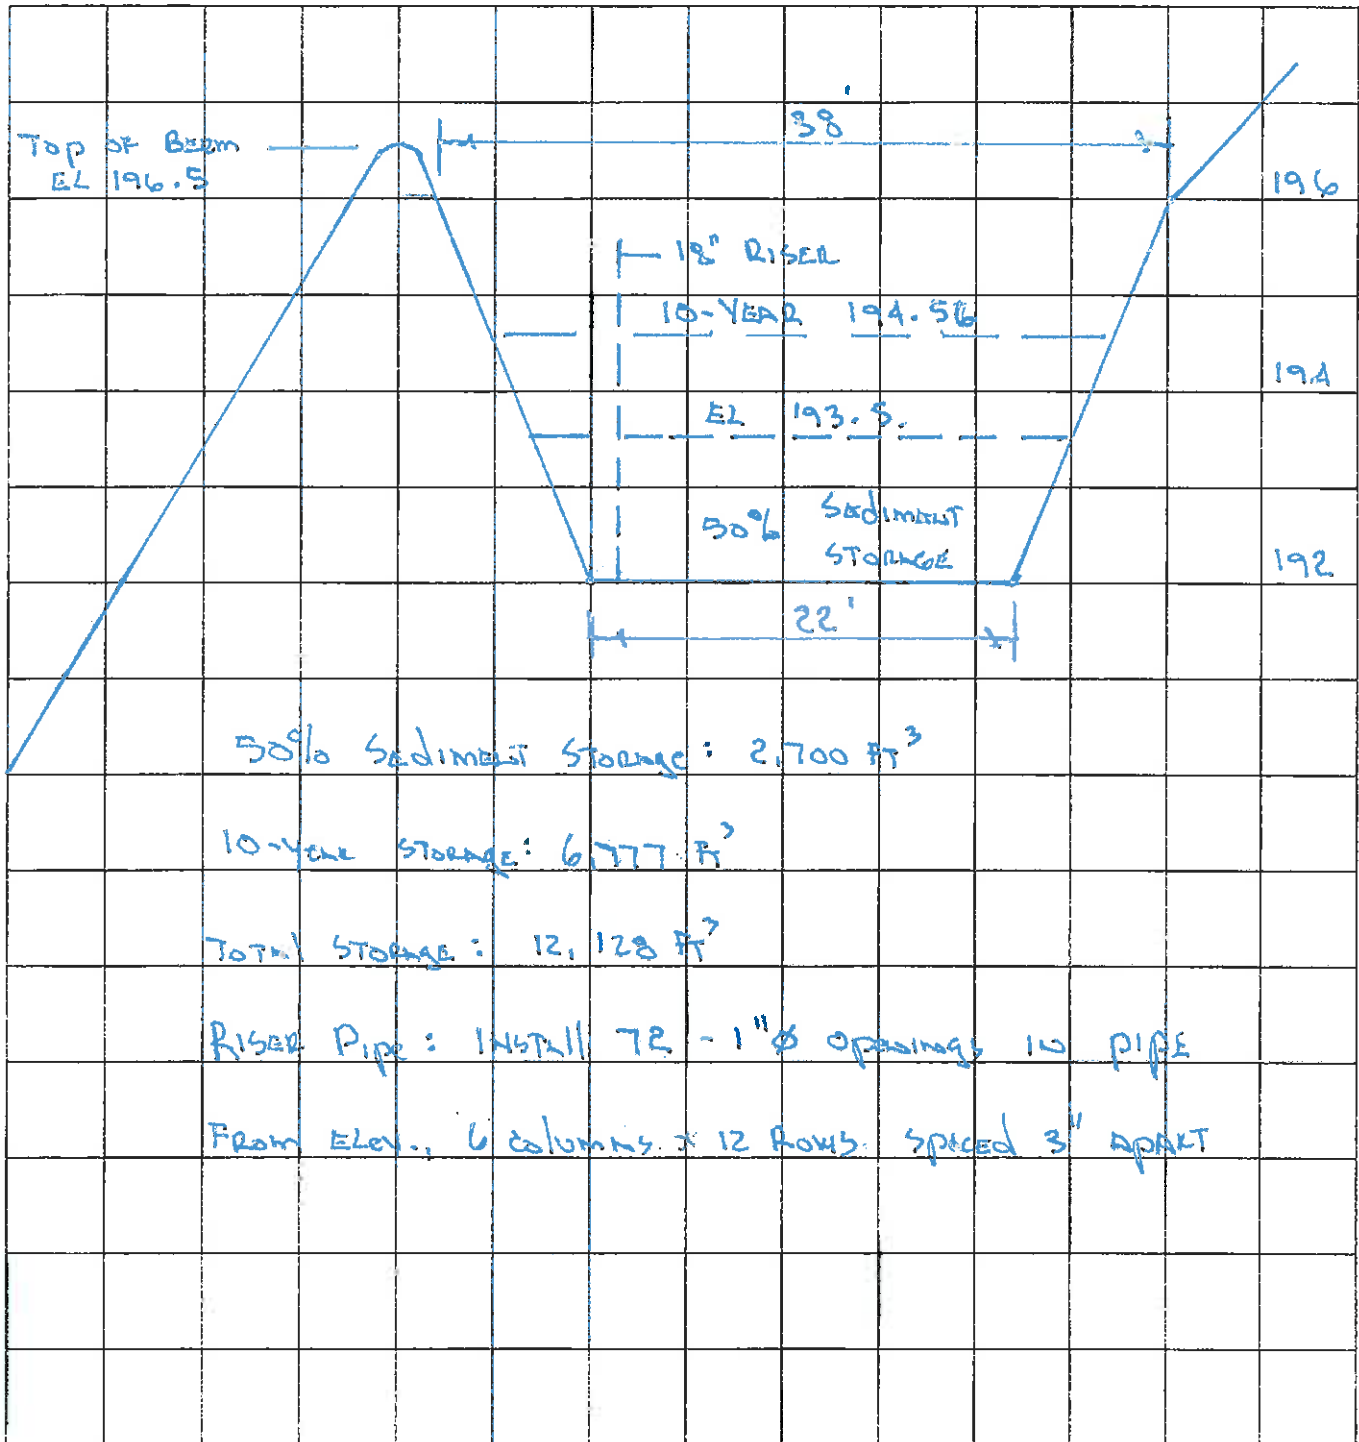 38'
Top OF BERM
EL 196.5
196
18" RISER
10-YEAR 194.56
194
EL 193.5
50% SEDIMENT
STORAGE
192
22'
50% SEDIMENT STORAGE: 2,700 FT³
10-YEAR STORAGE: 6,777 FT³
TOTAL STORAGE: 12,128 FT³
RISER PIPE: INSTALL 72 - 1"Ø OPENINGS IN PIPE
FROM ELEV., 6 COLUMNS x 12 ROWS SPACED 3" APART